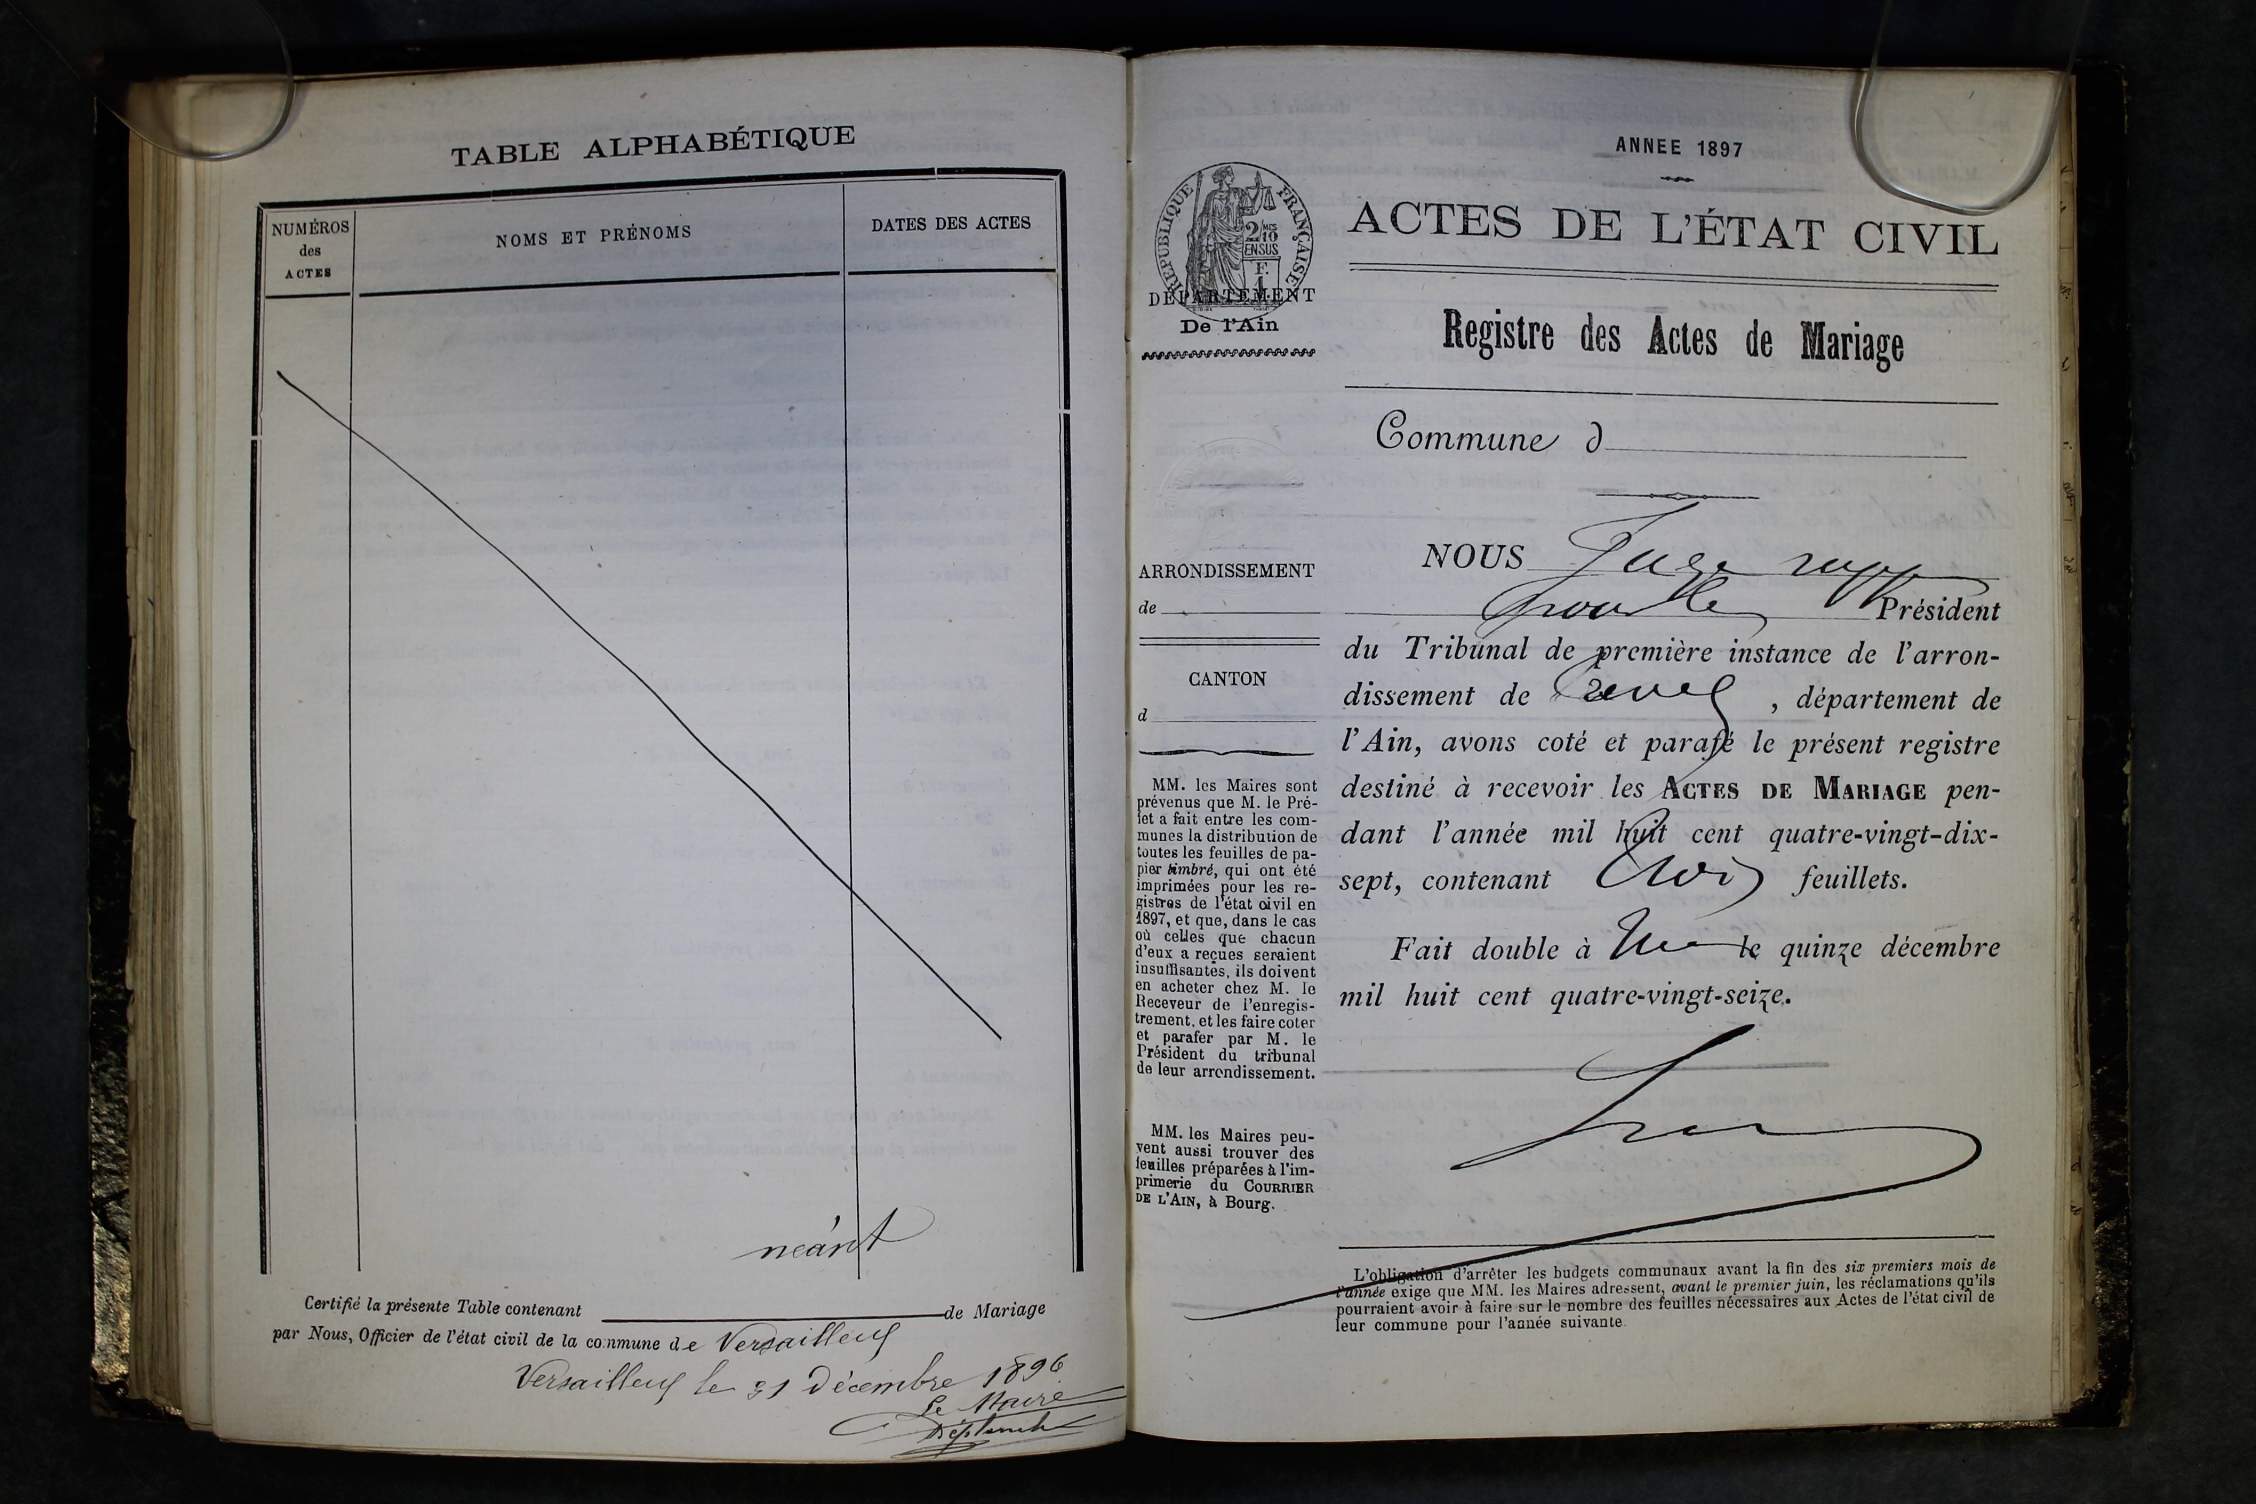 TABLE ALPHABÉTIQUE
NUMÉROS
des
ACTES
NOMS ET PRÉNOMS
DATES DES ACTES
néant
Certifié la présente Table contenant de Mariage
par Nous, Officier de l'état civil de la commune de Versailleux
Versailleux le 31 Décembre 1896
Le Maire
ANNEE 1897
RÉPUBLIQUE FRANÇAISE
2/10 MES
EN SUS
F.
1
DÉPARTEMENT
De l'Ain
ACTES DE L'ÉTAT CIVIL
Registre des Actes de Mariage
Commune d
ARRONDISSEMENT
de
CANTON
d
MM. les Maires sont
prévenus que M. le Pré-
fet a fait entre les com-
munes la distribution de
toutes les feuilles de pa-
pier timbré, qui ont été
imprimées pour les re-
gistres de l'état civil en
1897, et que, dans le cas
où celles que chacun
d'eux a reçues seraient
insuffisantes, ils doivent
en acheter chez M. le
Receveur de l'enregis-
trement, et les faire coter
et parafer par M. le
Président du tribunal
de leur arrondissement.
MM. les Maires peu-
vent aussi trouver des
feuilles préparées à l'im-
primerie du COURRIER
DE L'AIN, à Bourg.
NOUS Juge supp
Président
du Tribunal de première instance de l'arron-
dissement de Trévoux, département de
l'Ain, avons coté et parafé le présent registre
destiné à recevoir les ACTES DE MARIAGE pen-
dant l'année mil huit cent quatre-vingt-dix-
sept, contenant trois feuillets.
Fait double à le quinze décembre
mil huit cent quatre-vingt-seize.
L'obligation d'arrêter les budgets communaux avant la fin des six premiers mois de
l'année exige que MM. les Maires adressent, avant le premier juin, les réclamations qu'ils
pourraient avoir à faire sur le nombre des feuilles nécessaires aux Actes de l'état civil de
leur commune pour l'année suivante.